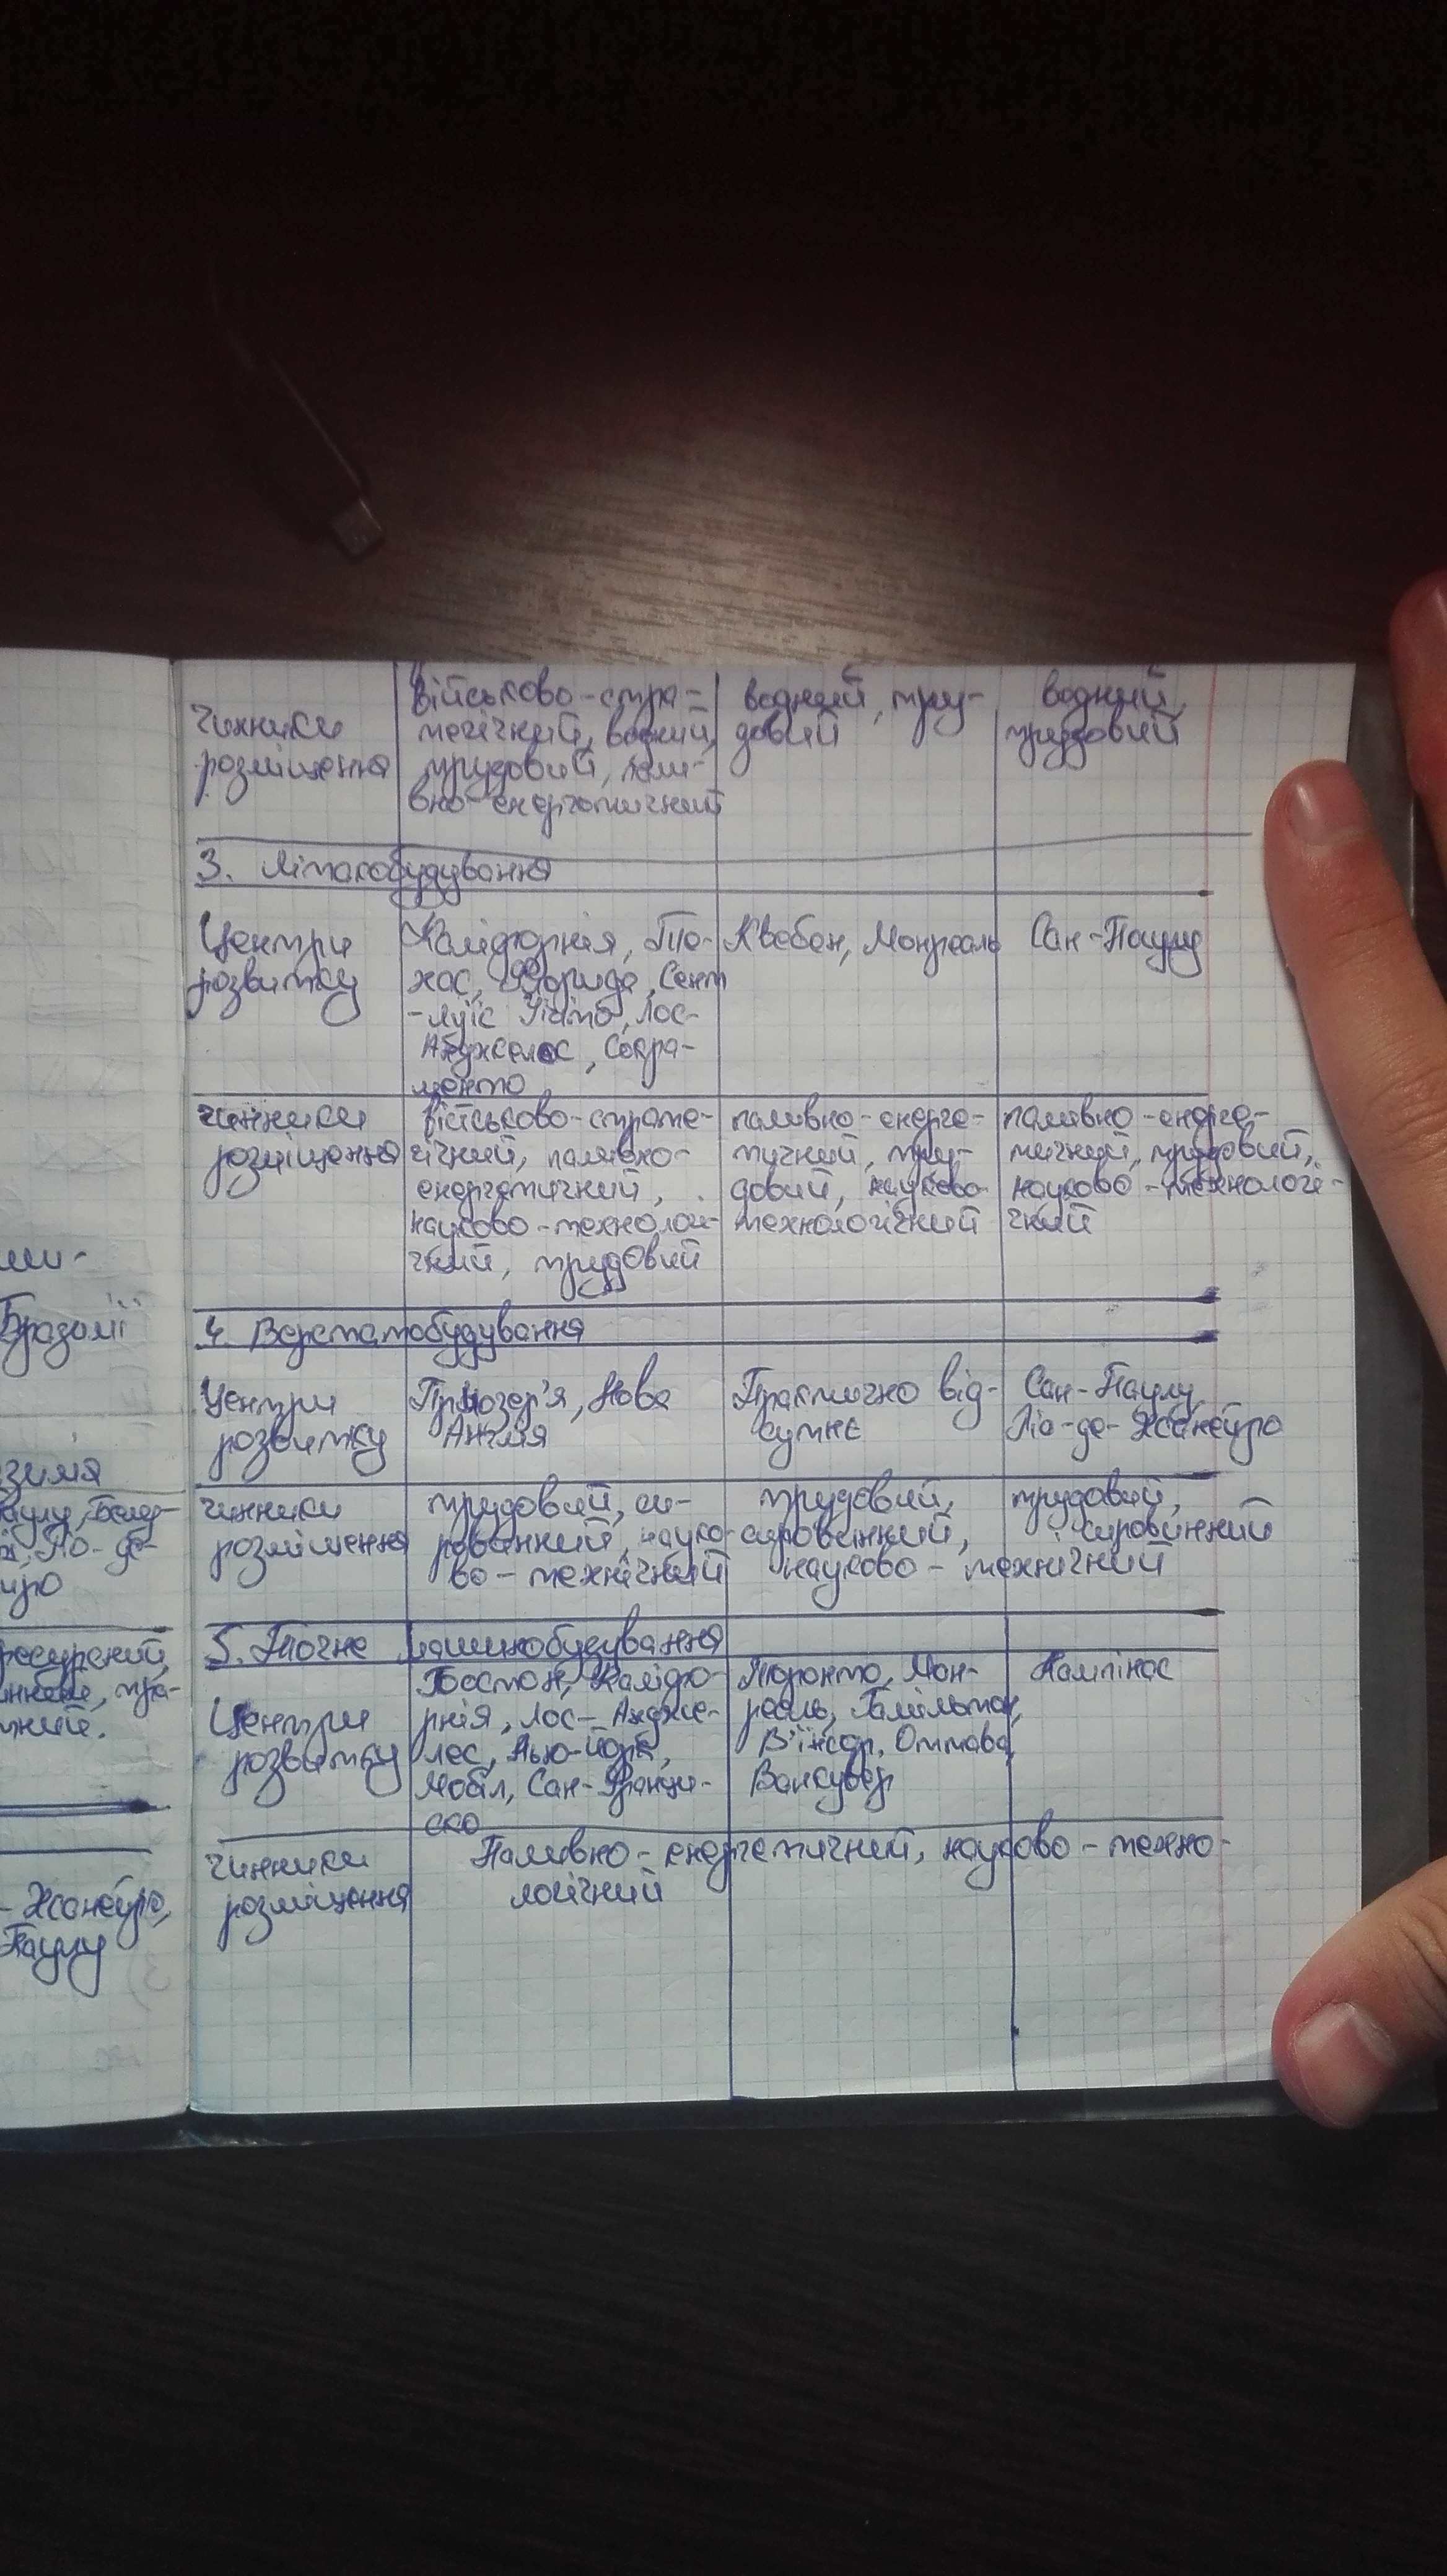 чинники розміщення
військово-стра-
тегічний, водний,
трудовий, пали-
вно-енергетичний
водний, тру-
довий
водний,
трудовий
3. Літакобудування
Центри
розвитку
Каліфорнія, Те-
хас, Флорида, Сент
-Луїс, Лос-
Анджелес, Сакра-
менто
Квебек, Монреаль
Сан-Паулу
чинники
розміщення
військово-страте-
гічний, паливно-
енергетичний,
науково-технологі-
чний, трудовий
паливно-енерге-
тичний, тру-
довий, науково-
технологічний
паливно-енерге-
тичний, трудовий,
науково-технологі-
чний
4. Верстатобудування
Центри
розвитку
Приозер'я, Нова
Англія
Практично від-
сутнє
Сан-Паулу,
Ріо-де-Жанейро
чинники
розміщення
трудовий, си-
ровинний, науко-
во-технічний
трудовий,
сировинний,
науково-технічний
трудовий,
сировинний
5. Точне машинобудування
Центри
розвитку
Бостон, Каліфо-
рнія, Лос-Андже-
лес, Нью-Йорк,
Мобіл, Сан-Франци-
ско
Торонто, Мон-
реаль, Гамільтон,
Віїнсор, Оттава,
Ванкувер
Кампінас
чинники
розміщення
Паливно-енергетичний, науково-техно-
логічний
Бразилії
-Жанейро,
Паулу